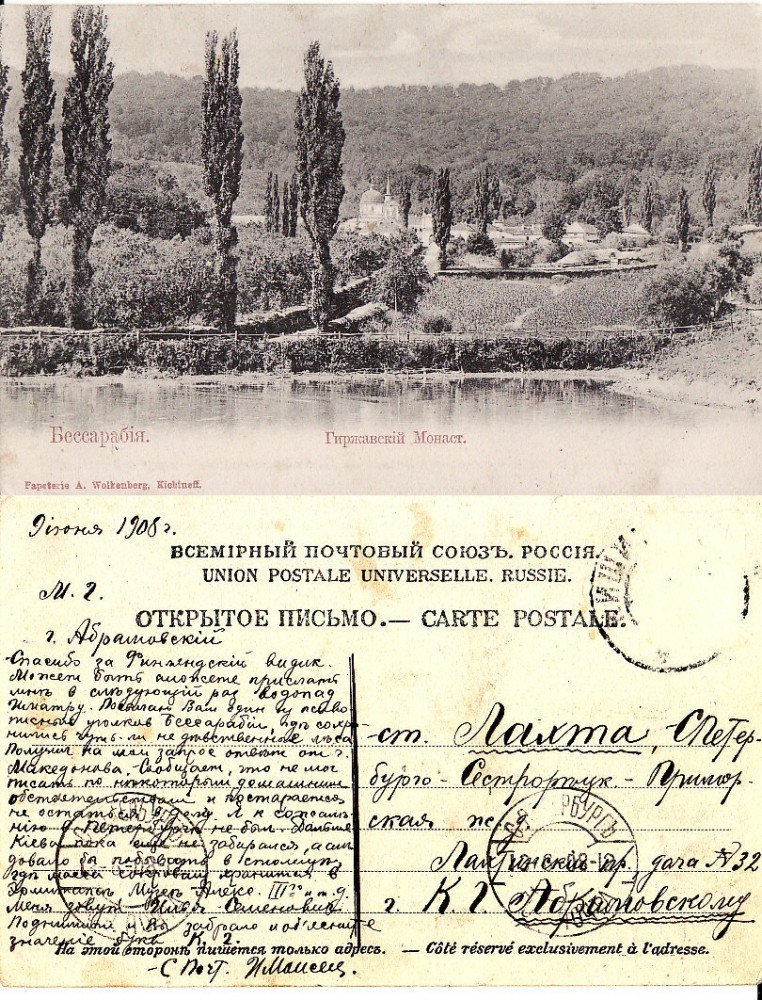 Бессарабія.
Гиржавскій Монаст.
Papeterie A. Wolkenberg, Kichineff.
9 іюня 1908 г.
ВСЕМІРНЫЙ ПОЧТОВЫЙ СОЮЗЪ. РОССІЯ.
UNION POSTALE UNIVERSELLE. RUSSIE.
М. г.
ОТКРЫТОЕ ПИСЬМО.— CARTE POSTALE.
г. Абрамовскій
Спасибо за Финляндскій видик.
Может быть сможете прислать
мнѣ в слѣдующій раз водопад
Иматру. Посылаю Вам один из живо-
писных уголков Бессарабіи, гдѣ сохра-
нились чуть-ли не дѣвственные лѣса
Получил на мой запрос отвѣт от г.
Македонова. Сообщает, что не мог
писать по нѣкоторым домашним
обстоятельствам и постарается
не остаться в долгу. Я к сожалѣ-
нію в Петербургѣ не был. Дальше
Кіева пока еще не забирался, а слѣ-
довало бы побывать в столицу,
гдѣ масса сокровищ хранится в
Эрмитажѣ, Музеѣ Алекс. III го и т. д.
Меня зовут Илья Семенович
значеніе букв К. Г.
С Почт. И Моисеец.
ст. Лахта, С Петер-
бурго - Сестрорѣцк. - Примор-
ская ж. д.
Лахтинскій пр, дача № 32
г. К. Г. Абрамовскому
На этой сторонѣ пишется только адресъ. — Côté réservé exclusivement à l'adresse.